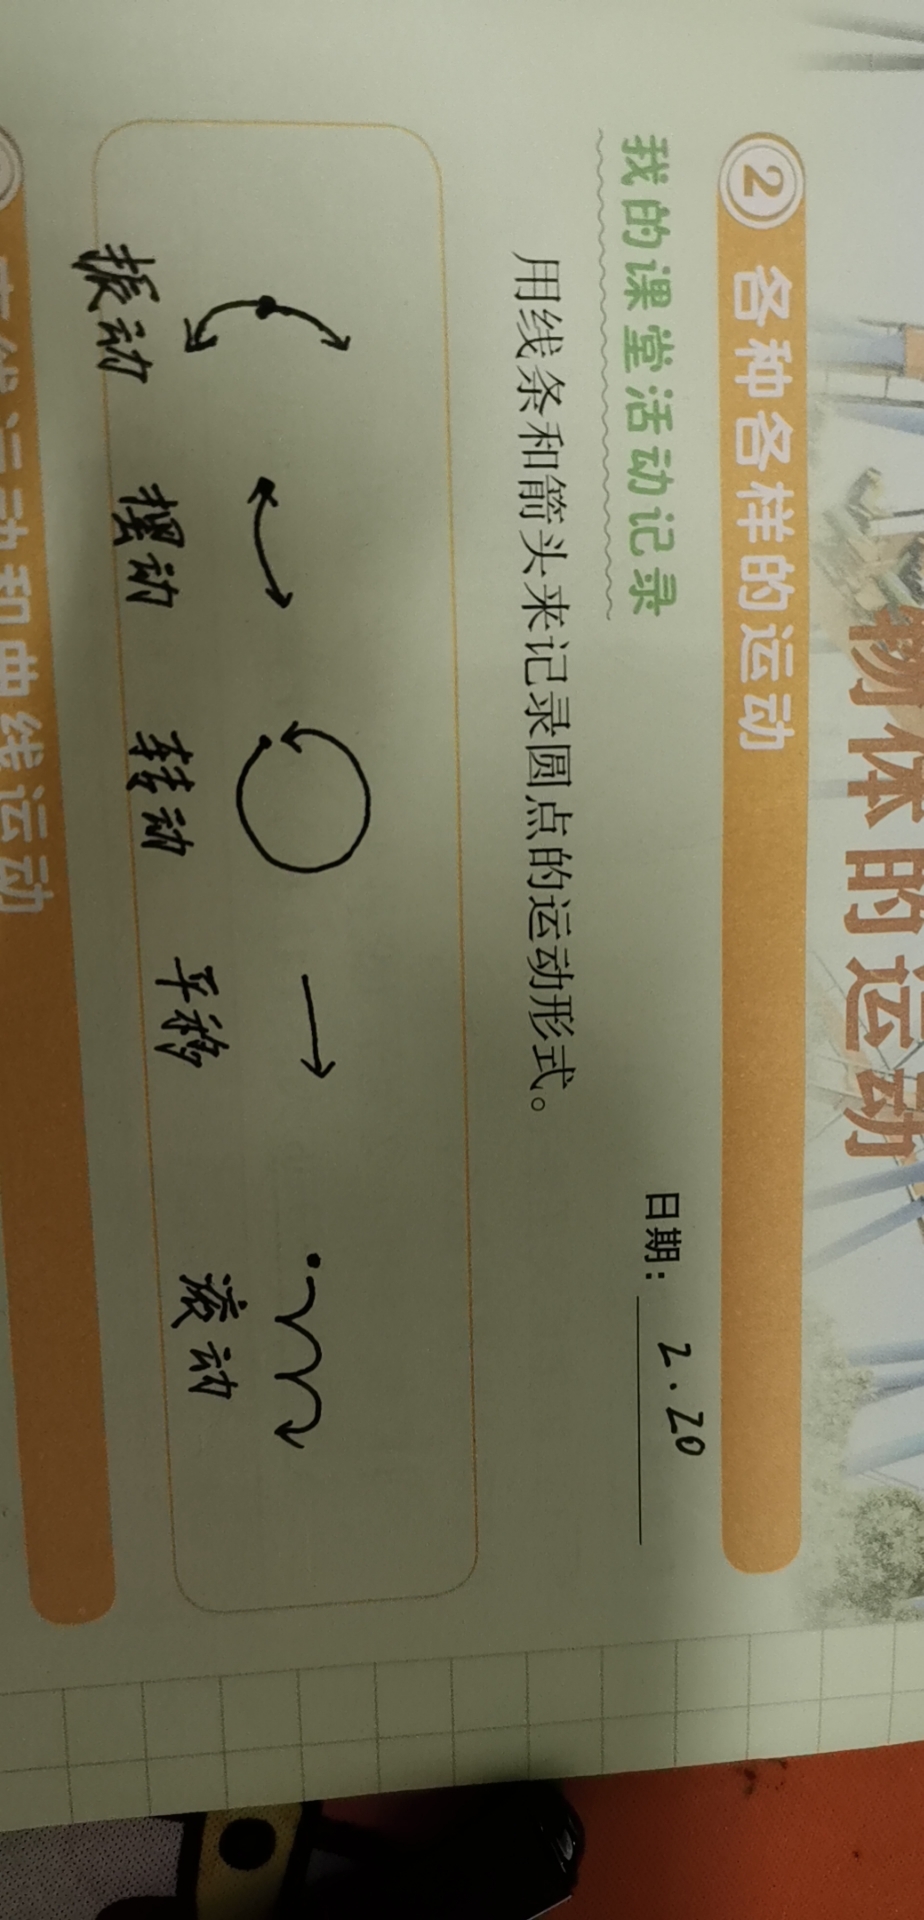 物体的运动
2 各种各样的运动
我的课堂活动记录
日期： 2.20
用线条和箭头来记录圆点的运动形式。
振动 摆动 转动 平移 滚动
直线运动和曲线运动